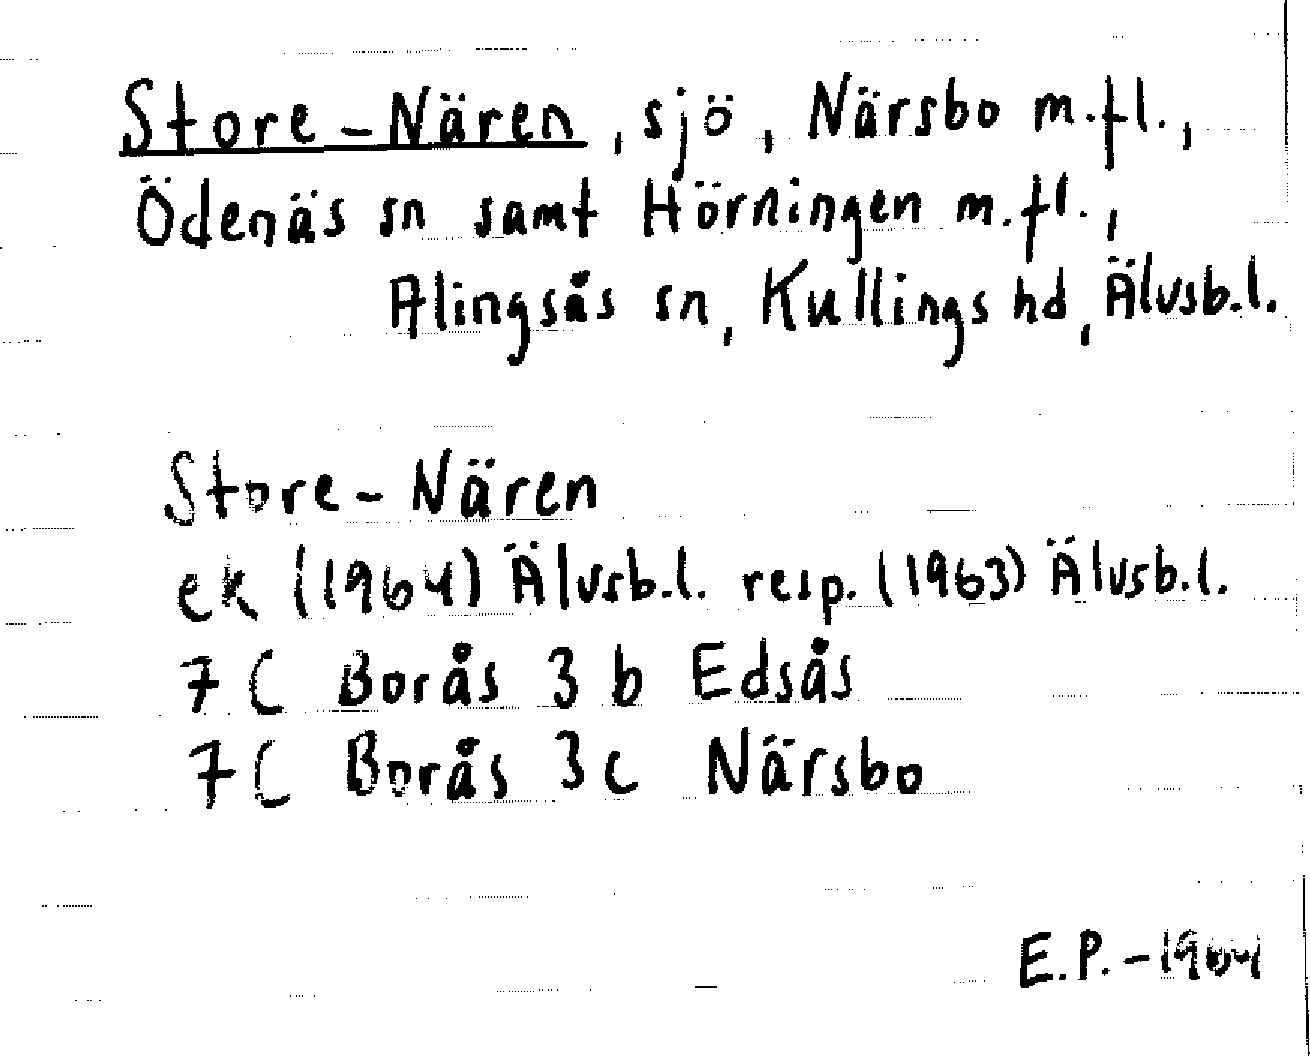 Store-Nären, sjö, Närsbo m.fl.,
Ödenäs sn samt Hörningen m.fl.,
Alingsås sn, Kullings hd, Älvsb.l.
Store-Nären
ek (1964) Älvsb.l. resp. (1963) Älvsb.l.
7 C Borås 3 b Edsås
7C Borås 3c Närsbo
E.P.-1964